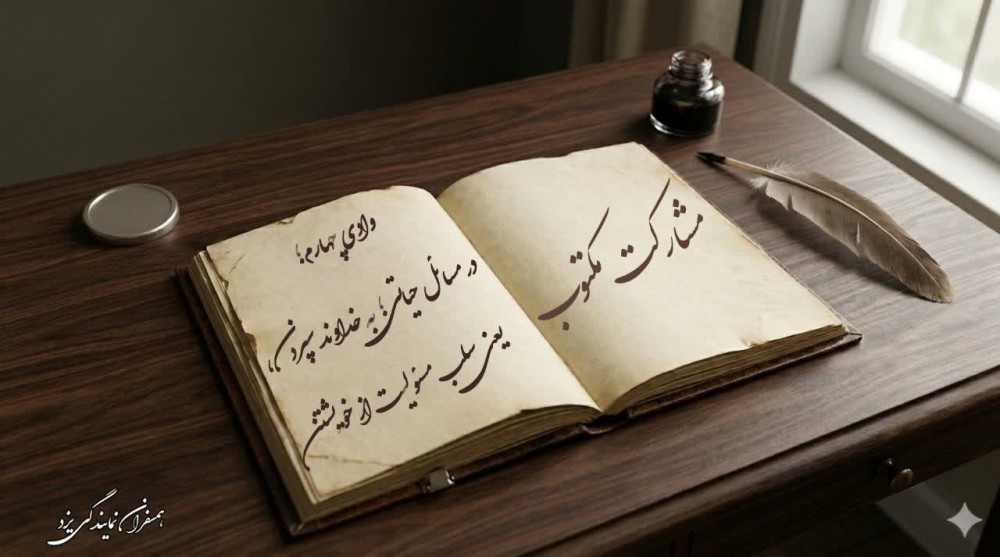 مشارکت مکتوب
وادی چهارم؛
در مسائل حیاتی؛ به خداوند سپردن،
یعنی سلب مسئولیت از خویشتن
همسفران نمایندگی یزد